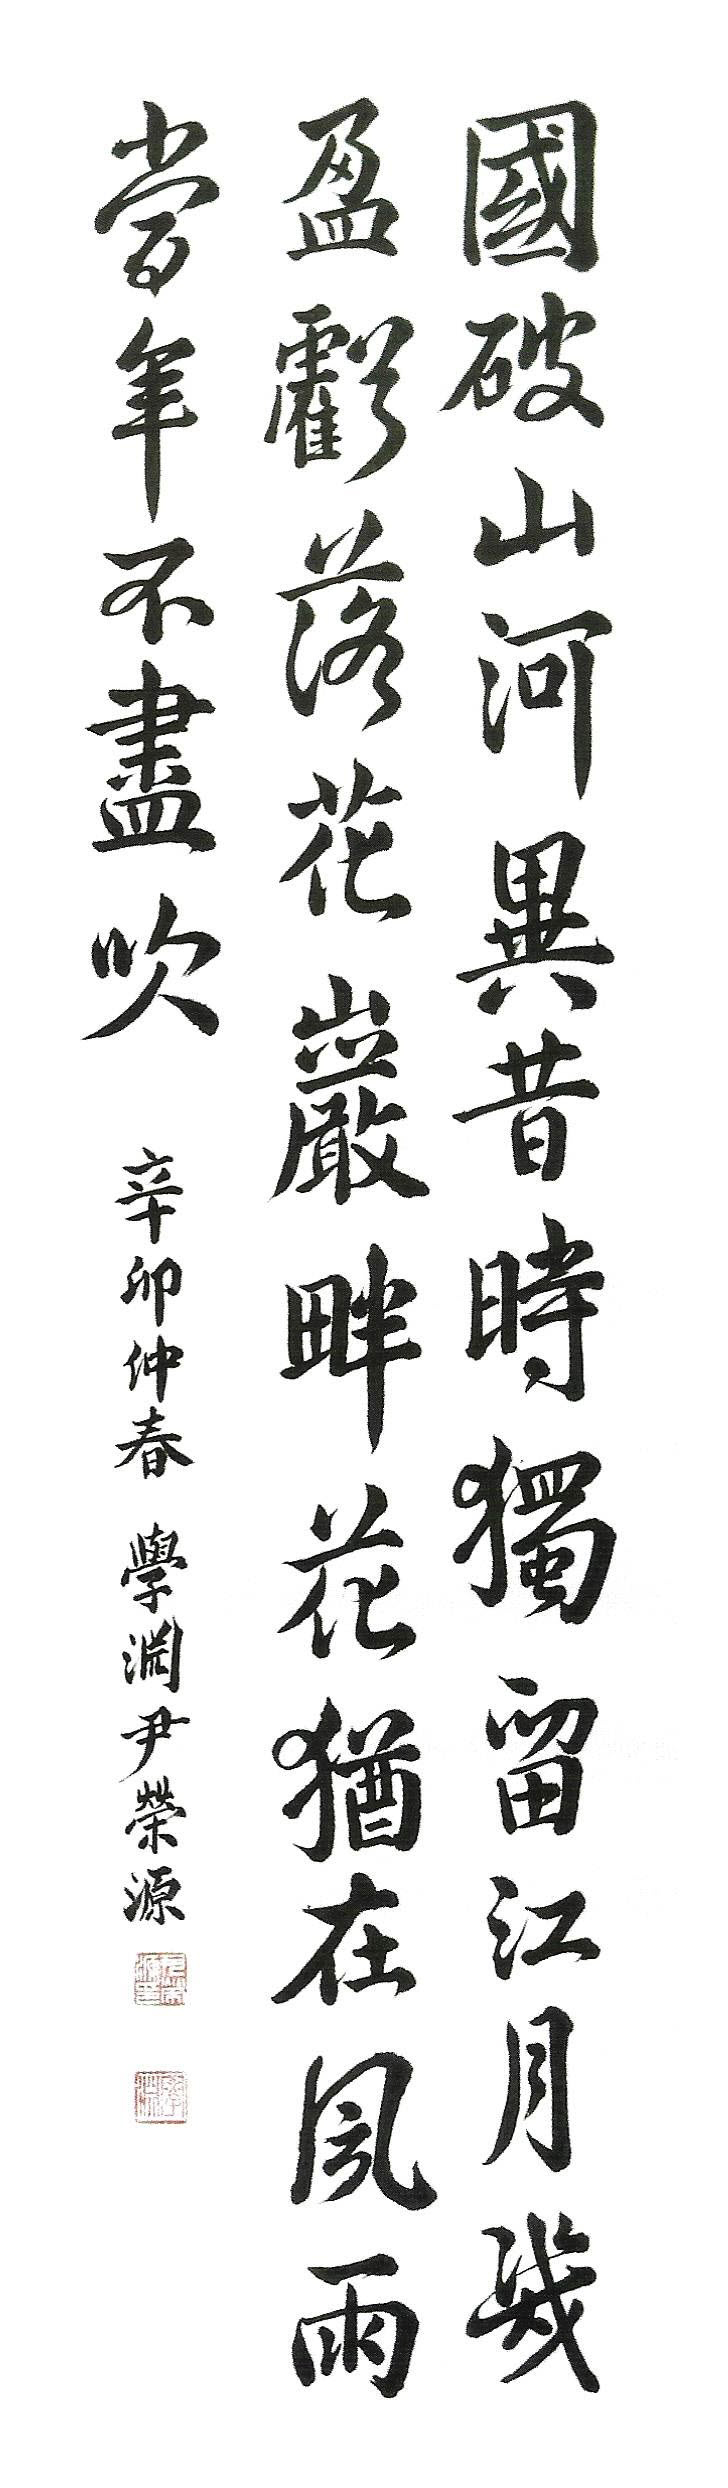 國破山河異昔時獨留江月幾
盈虧落花巖畔花猶在風雨
當年不盡吹
辛卯仲春 學淵尹榮源